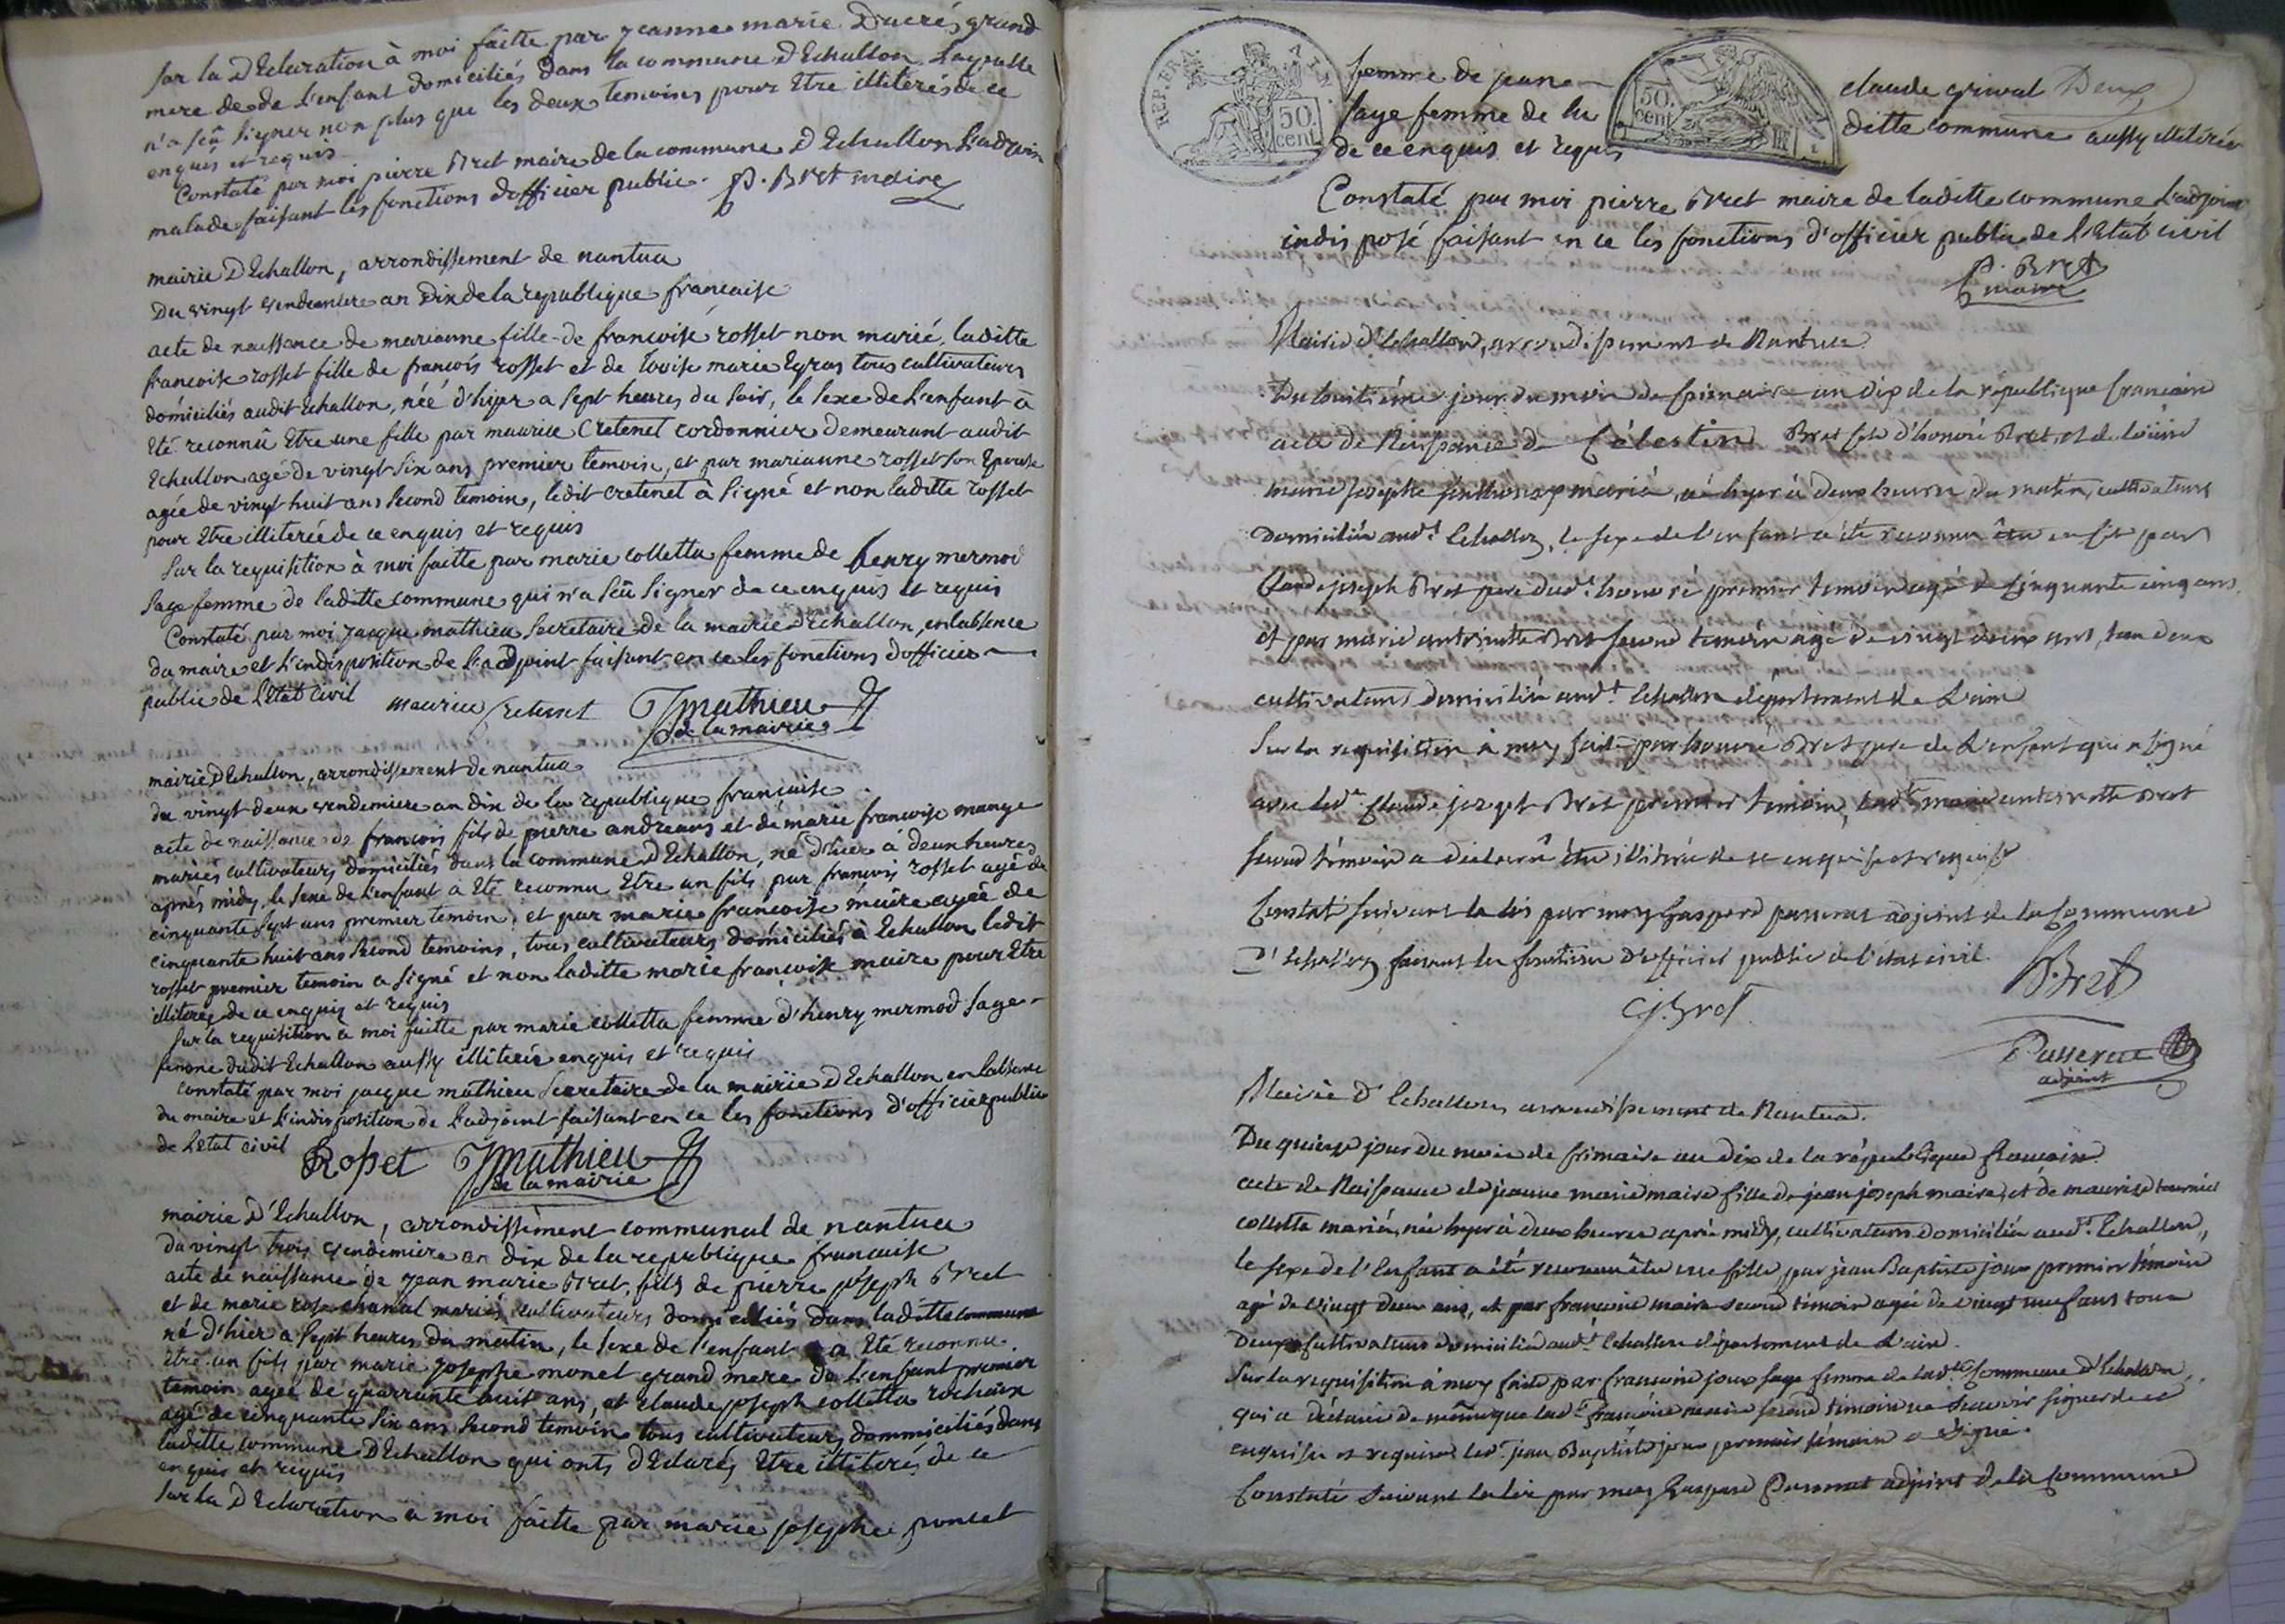 sur la Déclaration à moi faitte par jeanne marie Ducrés grand
mere de de L'enfant domiciliés dans la commune D'Echallon. Laquelle
n'a sçû signer non plus que les deux temoins pour Etre illiterés de ce
enquis et requis
Constaté par moi pierre Bret maire de la commune D'Echallon L'adjoin
malade faisant les fonctions d'officier public. P. Bret maire
mairie D'Echallon, arrondissement de nantua
Du vingt vendemiere an Dix de la republique francaise
acte de naissance de marianne fille de francoise rosset non marié, laditte
francoise rosset fille de francois rosset et de Louise marie Egraz tous cultivateurs
domiciliés audit Echallon, néé d'hyer a sept heures du soir, le sexe de L'enfant à
Eté reconnû Etre une fille par maurice Cretenet cordonnier demeurant audit
Echallon agé de vingt six ans premier temoin, et par marianne rosset son Epouse
agée de vingt huit ans second temoin, ledit cretenet à signé et non laditte rosset
pour Etre illiterée de ce enquis et requis
sur la requisition à moi faitte par marie colletta femme de henry mermod
sage femme de laditte commune qui n'a sçû signer de ce enquis et requis
Constaté par moi jacque mathieu secretaire de la mairie d'Echallon, en labsence
du maire et L'indisposition de L'adjoint faisant en ce les fonctions d'officier
public de L'Etat civil maurice Cretenet Jmathieu
s. de la mairie
mairie D'Echallon, arrondissement de nantua
du vingt deux vendemiere an dix de la republique française
acte de naissance de francois fils de pierre andreaus et de marie francoise mange
mariés cultivateurs domiciliés dans la commune D'Echallon, né d'hier à deux heures
aprés midy, le sexe de L'enfant à Eté reconnu Etre un fils par francois rosset agé de
cinquante sept ans premier temoin, et par marie francoise maire agée de
cinquante huit ans second temoins, tous cultivateurs domiciliés à Echallon ledit
rosset premier temoin a signé et non laditte marie francoise maire pour Etre
illiterée de ce enquis et requis
sur la requisition à moi faitte par marie colletta femme d'henry mermod sage
femme dudit Echallon aussy illiterée enquis et requis
constaté par moi jacque mathieu secretaire de la mairie D'Echallon en labsence
du maire et L'indisposition de L'adjoint faisant en ce les fonctions d'officier public
de L'Etat civil Rosset Jmathieu
s. de la mairie
mairie d'Echallon, arrondissement communal de nantua
du vingt trois vendemiere an dix de la republique francaise
acte de naissance de jean marie Bret, fils de pierre joseph Bret
et de marie rose chanal mariés cultivateurs domiciliés dans laditte commune
né d'hier a sept heures du matin, le sexe de l'enfant a Eté reconnu
Etre un fils par marie josephe monet grand mere de L'enfant premier
temoin agée de quarrante huit ans, et claude joseph colletta rochaix
agé de cinquante six ans second temoin tous cultivateurs dommiciliés dans
laditte commune D'Echallon qui onts déclarés Etre illiterés de ce
enquis et requis
sur la Déclaration a moi faitte par marie josephe poncet
REP. FRA. 50 cent.
femme de jeane claude grival Deux
sage femme de la ditte commune aussy illiterée
50. cent
de ce enquis et requis
Constaté par moi pierre Bret maire de laditte commune L'adjoint
indisposé faisant en ce les fonctions d'officier public de L'Etat civil
P. Bret
maire
Mairie d'Echallon, arrondissement de Nantua
Du huitième jour du mois de frimaire an dix de la république francaise
acte de Naissance de Célestin Bret fils d'honoré Bret et de Louise
marie josephe mariés, né hyer à deux heures du matin, cultivateurs
domiciliés audt. Echallon, le sexe de l'enfant a été reconnu être un fils par
Claude joseph Bret pere dudt. honoré premier temoin agé de Cinquante cinq ans,
et par marie antoinette Bret second temoin agée de vingt deux ans, tous deux
cultivateurs domiciliés audt. Echallon département de L'ain
Sur la requisition à moy faite par honoré Bret pere de L'enfant qui a signé
avec ledt. Claude joseph Bret premier temoin, ladte. marie antoinette Bret
second témoin a déclaré être illitérée de ce enquise et requise
Constaté suivant la loi par moy Gaspard passerat adjoint de la Commune
D'Echallon faisant les fonctions D'officier public de l'état civil.
Bret
C. j. Bret
Passerat
adjoint
Mairie D'Echallon arrondissement de Nantua.
Du quinze jour du mois de frimaire an dix de la république francaise.
acte de Naissance de jeanne marie maire fille de jean joseph maire, et de maurise tournier
colletta mariés, née hyer à deux heures après midy, cultivateurs domiciliés audt. Echallon,
le sexe de l'Enfant a été reconnu être une fille, par jean Baptiste joux premier témoin
agé de vingt deux ans, et par francoise maire second témoin agée de vingt neuf ans tous
Deux Cultivateurs domiciliés audt. Echallon département de L'ain.
Sur la requisition à moy faite par francoise joux sage femme de ladte. Commune d'Echallon,
qui a déclaré de même que ladte. francoise maire second témoin ne scavoir signer de ce
enquises et requises ledt. jean Baptiste joux premier témoin a signé.
Constaté suivant la loi par moy Gaspard Passerat adjoint de la Commune